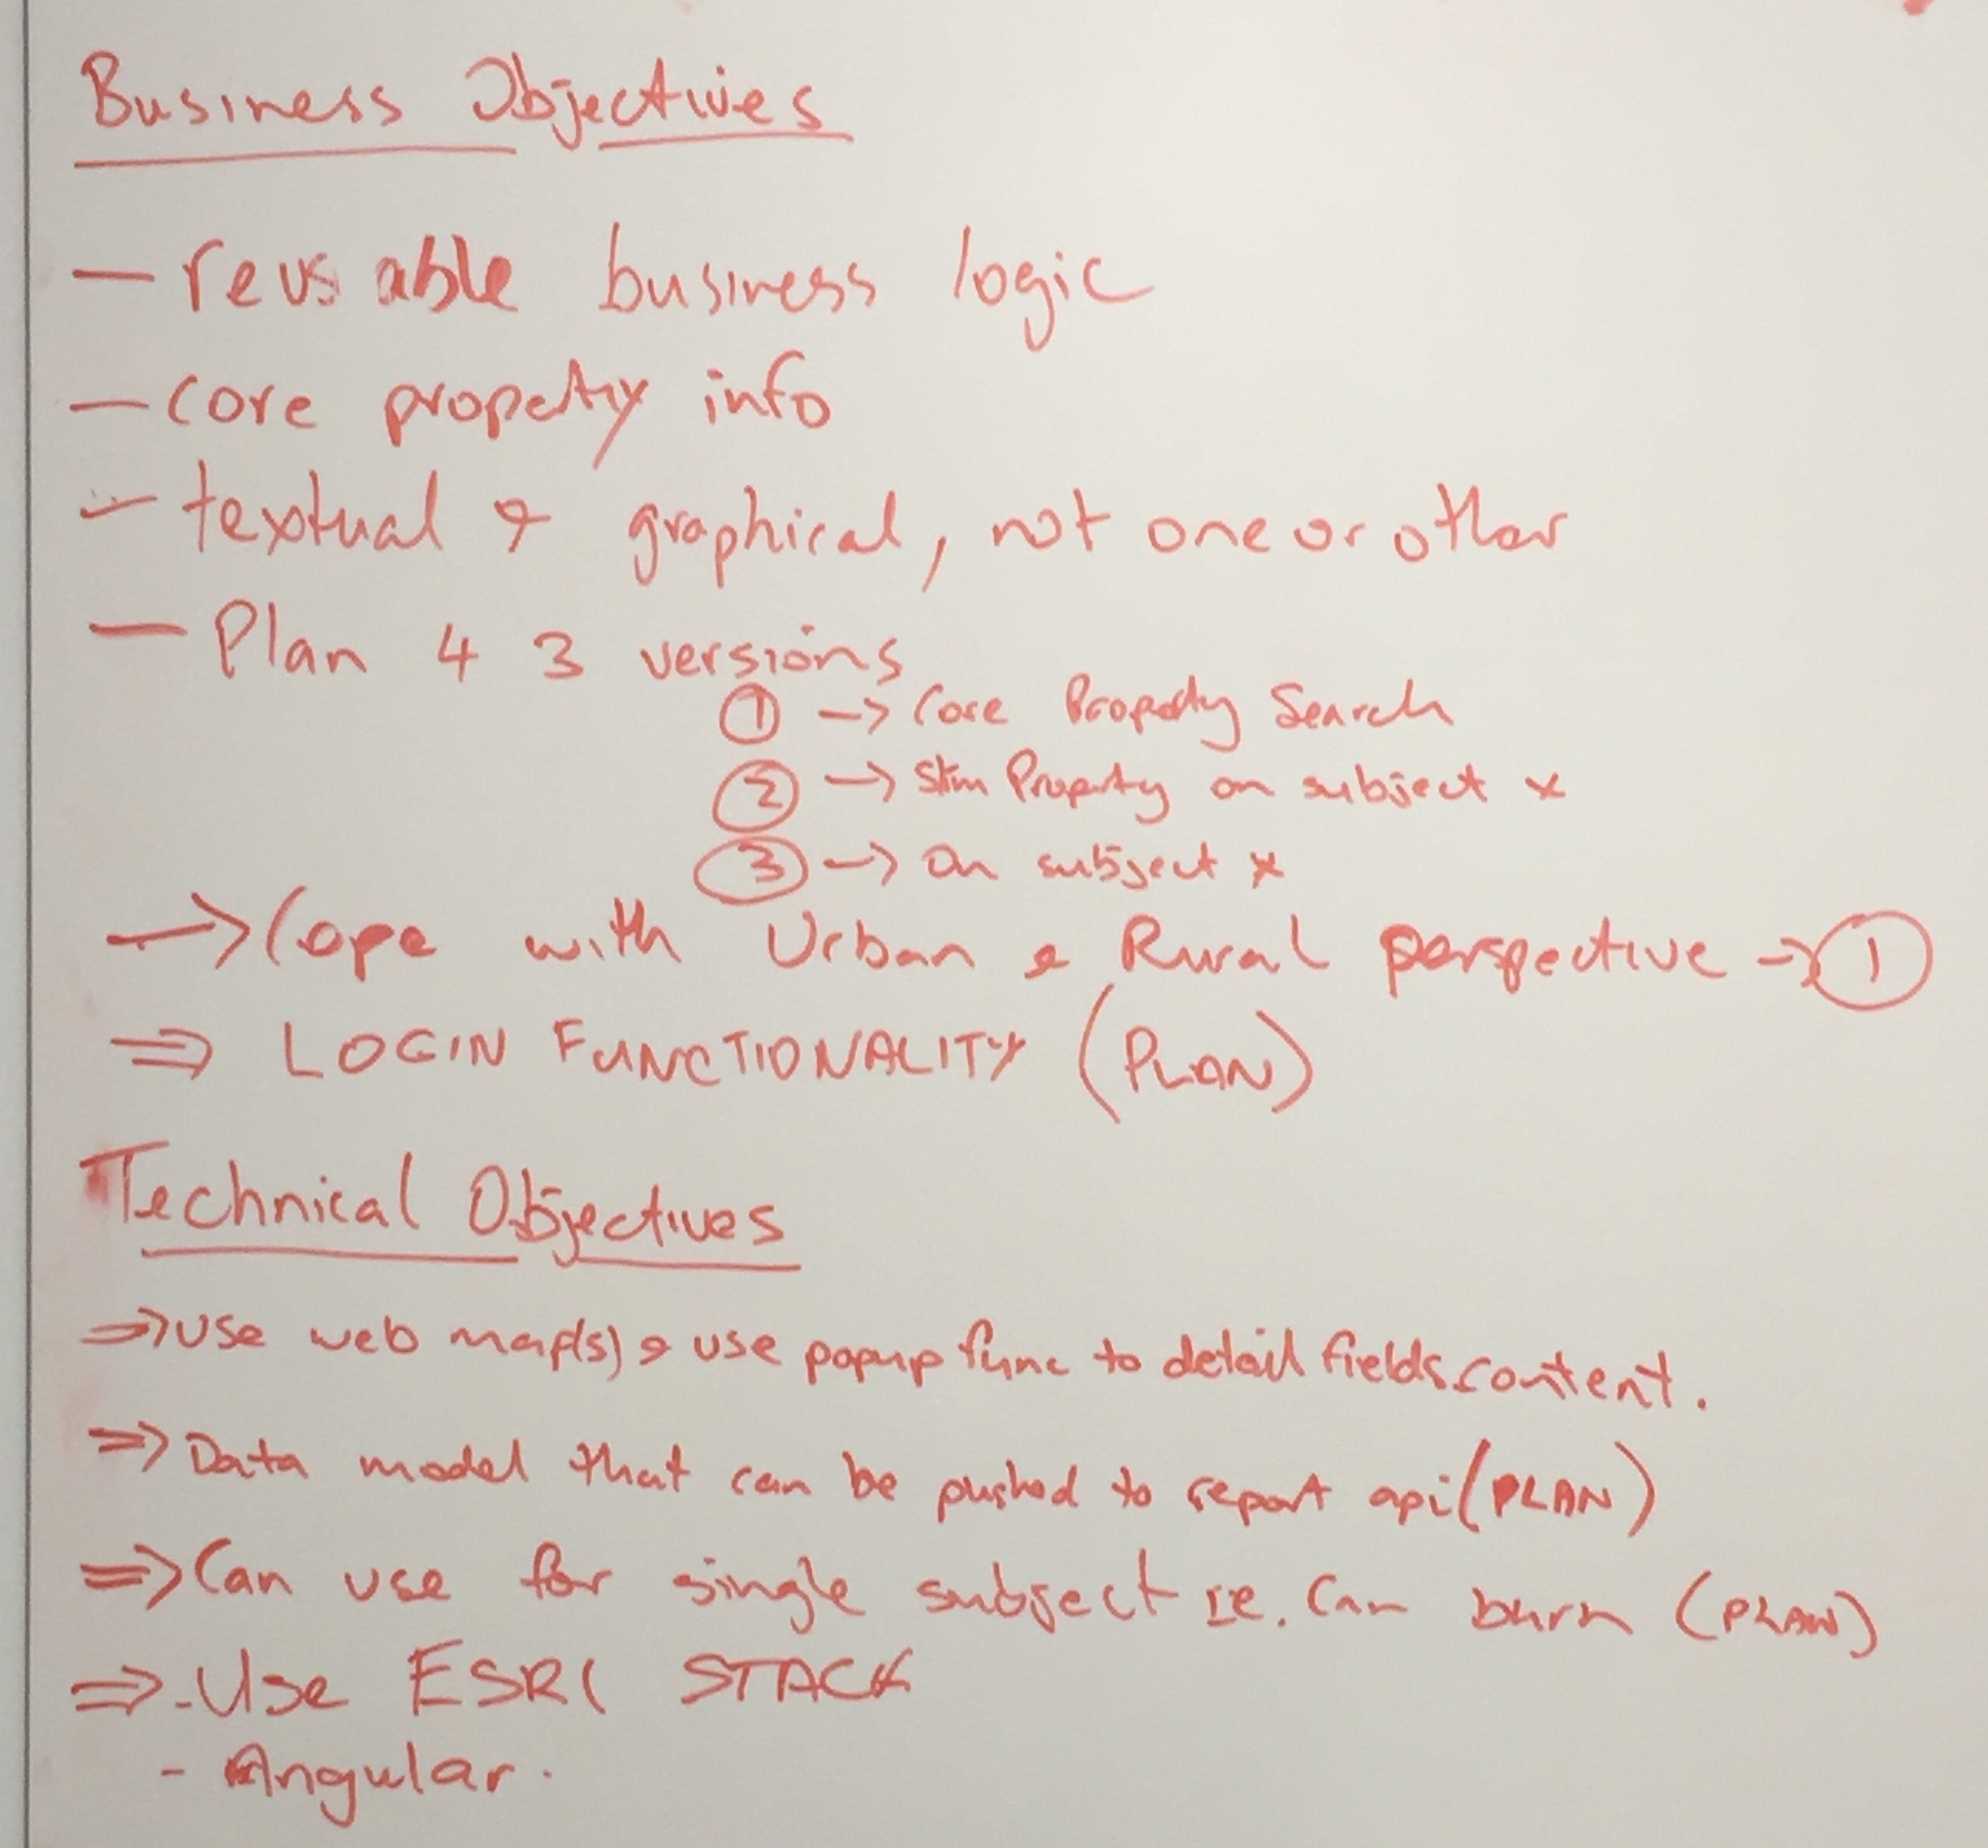 Business Objectives
— reusable business logic
— core property info
— textual & graphical, not one or other
— Plan 4 3 versions
① → Core Property Search
② → Slim Property on subject x
③ → On subject x
→ Cope with Urban & Rural perspective → ①
⇒ LOGIN FUNCTIONALITY (PLAN)
Technical Objectives
⇒ Use web map(s) & use popup func to detail fields content.
⇒ Data model that can be pushed to report api (PLAN)
⇒ Can use for single subject ie. Can burn (PLAN)
⇒ - Use ESRI STACK
- Angular.